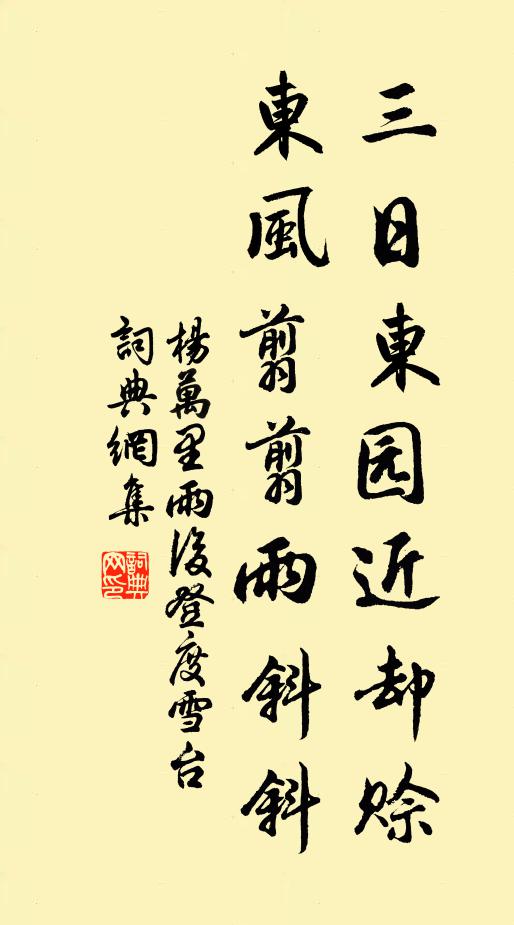 三日東园近却赊
東風翦翦雨斜斜
楊萬里雨後登度雪台
詞典網集
詞典网印